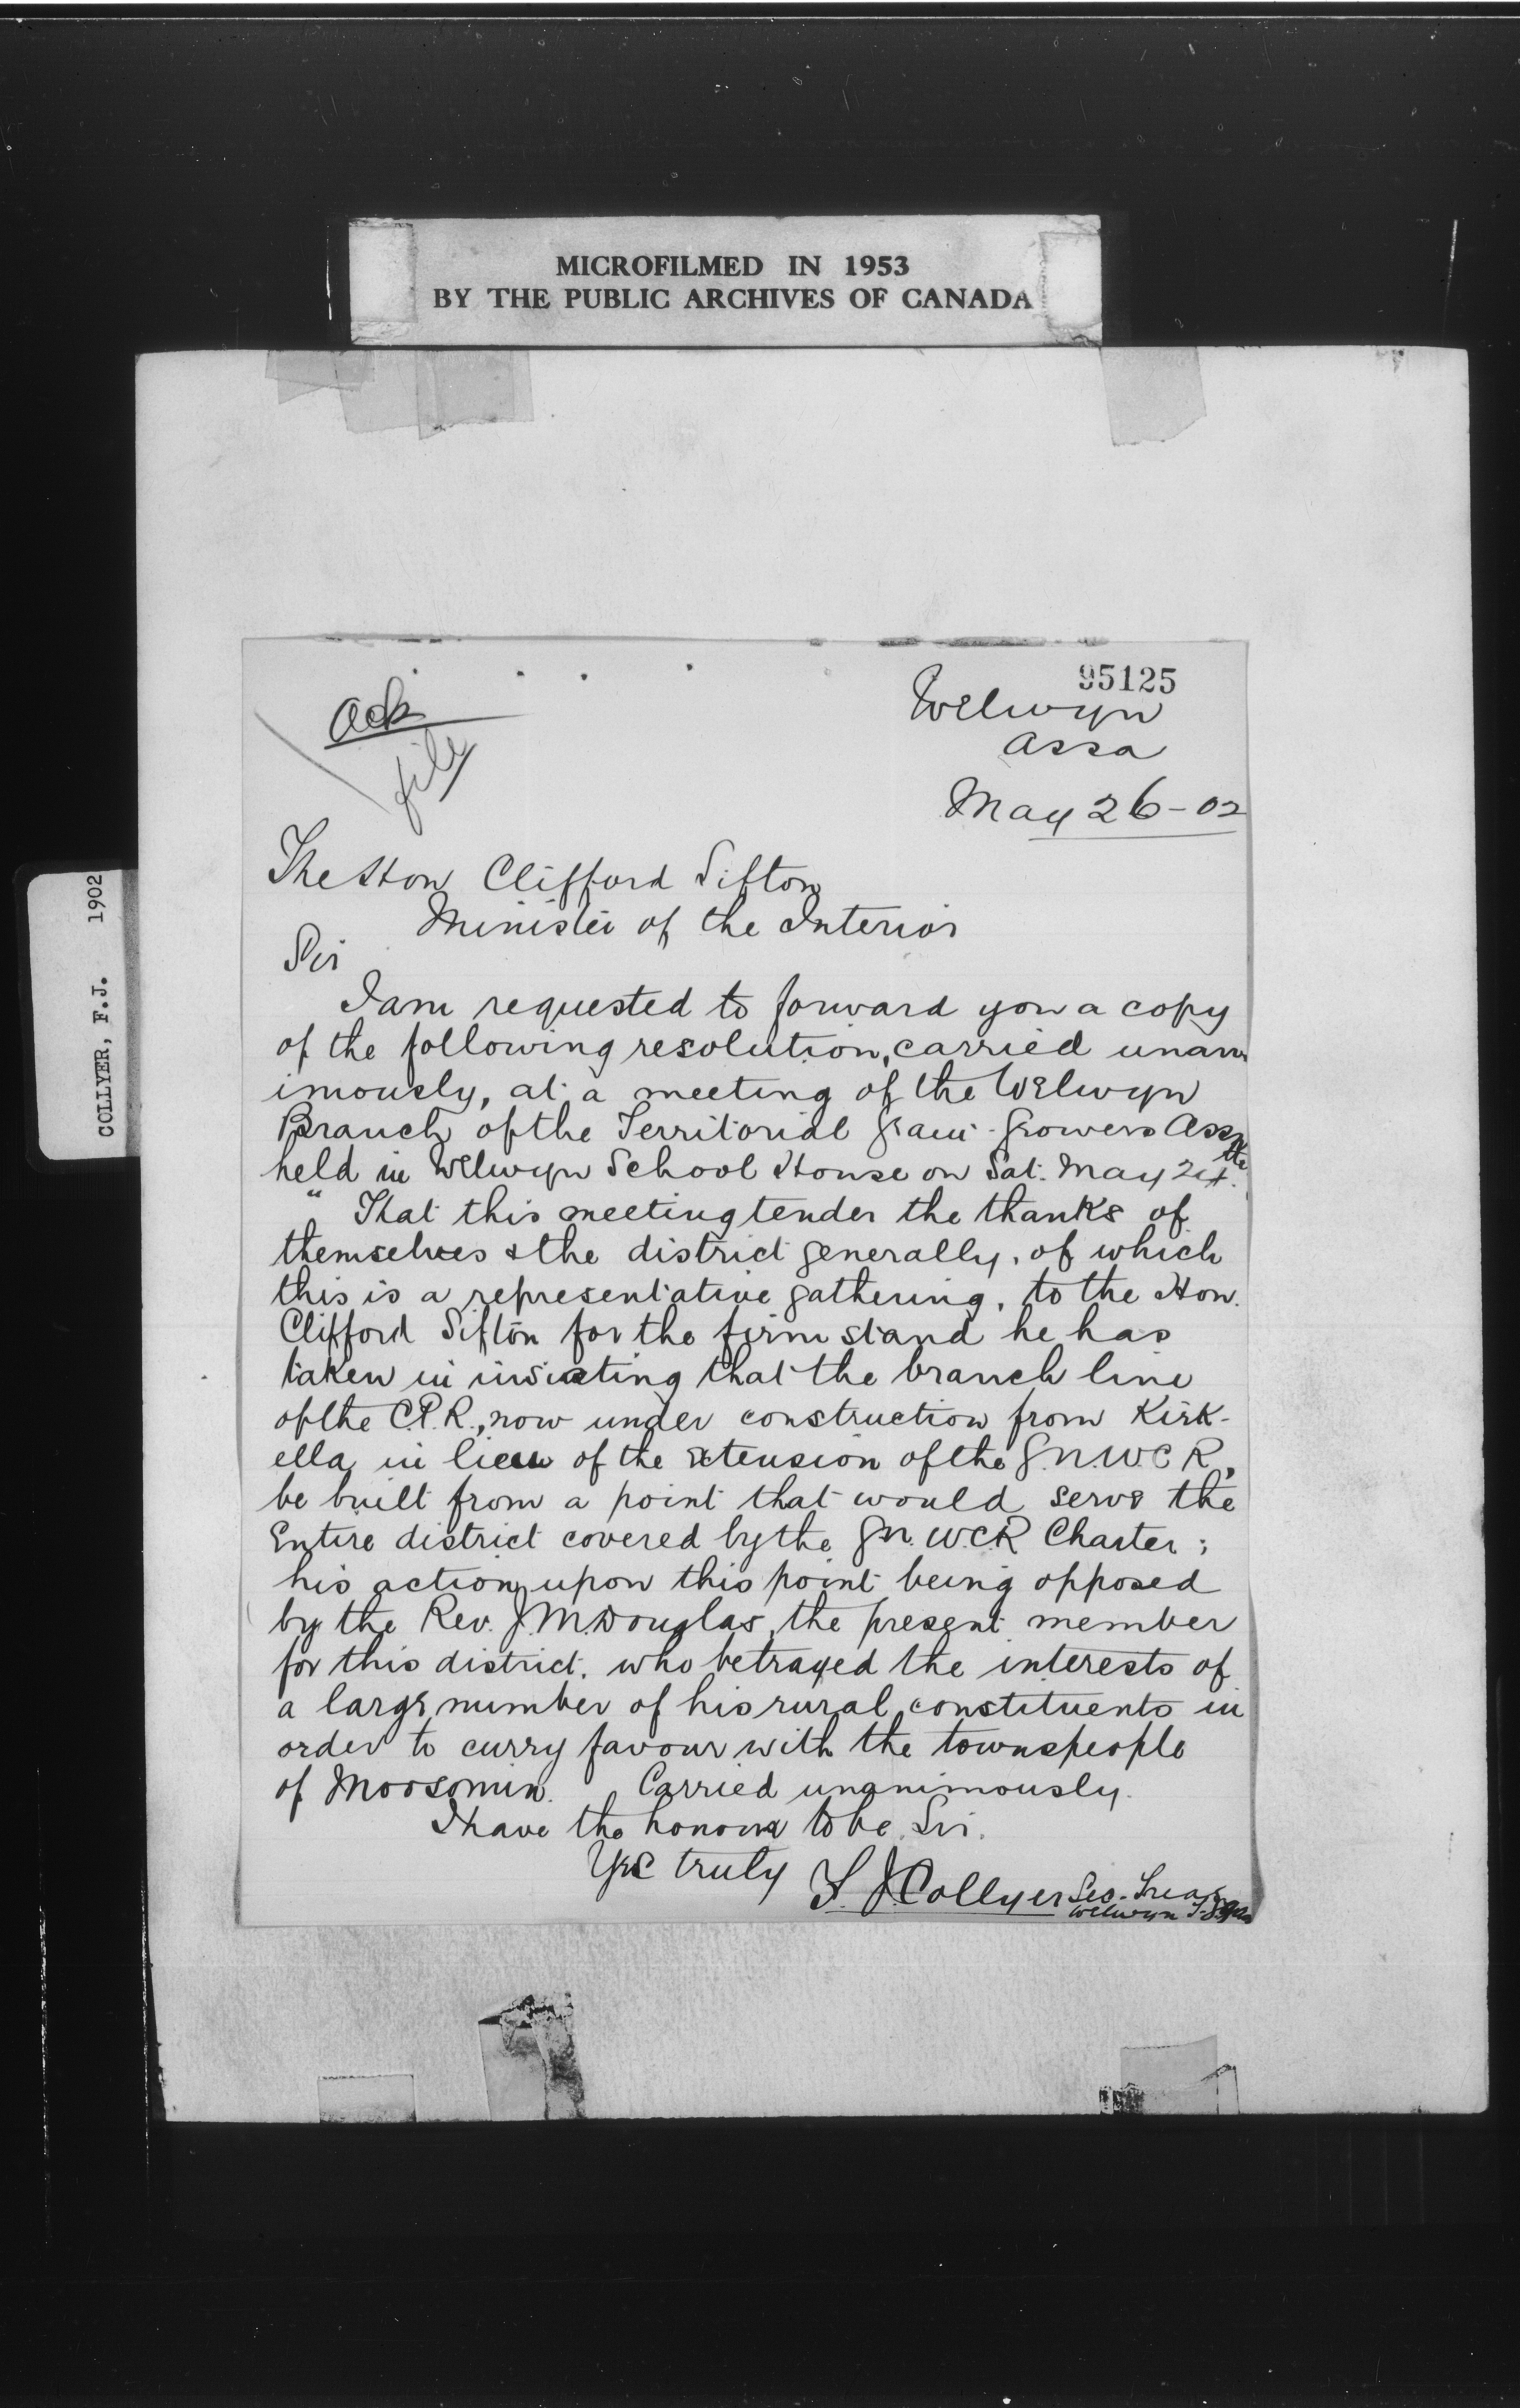 MICROFILMED IN 1953
BY THE PUBLIC ARCHIVES OF CANADA
COLLYER, F.J. 1902
95125
Ack
file
Welwyn
Assa
May 26-02
The Hon Clifford Sifton
Minister of the Interior
Sir
I am requested to forward you a copy
of the following resolution, carried unan
imously, at a meeting of the Welwyn
Branch of the Territorial Grain-Growers Assn
held in Welwyn School House on Sat. May 24th.
" That this meeting tender the thanks of
themselves & the district generally, of which
this is a representative gathering, to the Hon.
Clifford Sifton for the firm stand he has
taken in insisting that the branch line
of the C.P.R., now under construction from Kirk-
ella in lieu of the extension of the G.N.W.C R,
be built from a point that would serve the
Entire district covered by the G.N.W.C.R Charter;
his action upon this point being opposed
by the Rev. J.M.Douglas, the present member
for this district, who betrayed the interests of
a large number of his rural constituents in
order to curry favour with the townspeople
of Moosomin. Carried unanimously.
I have the honour to be, Sir.
Yrs truly F. J. Collyer Sec.-Treas
Welwyn